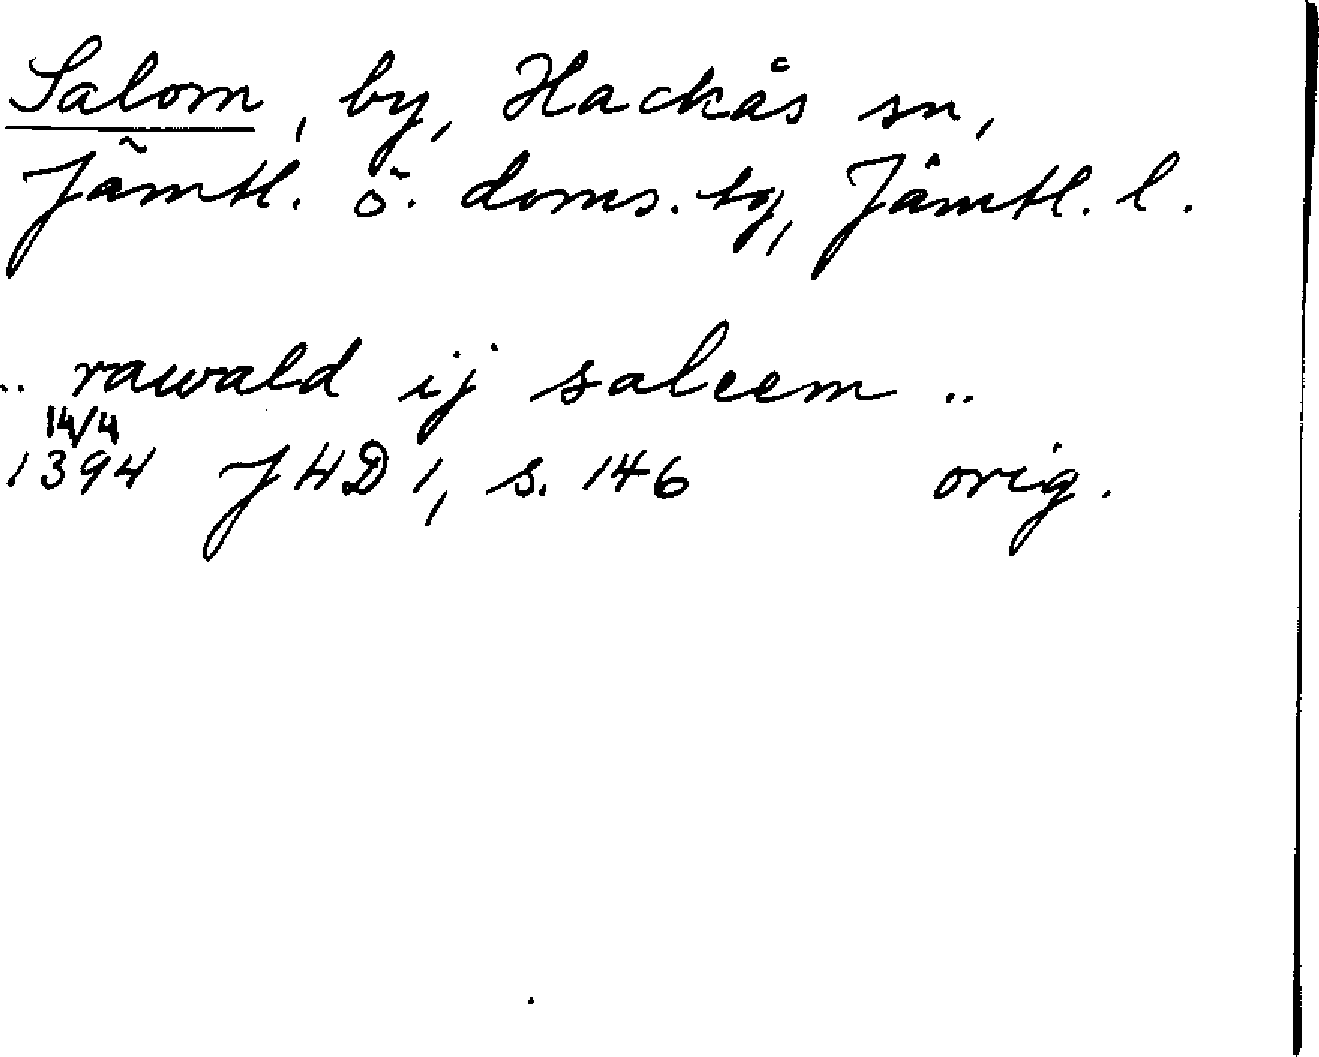 Salom, by, Hackås sn,
Jämtl. ö. doms. tg, Jämtl. l.
.. rawald ij saleem ..
14/4
1394 JHD 1, s. 146 orig.